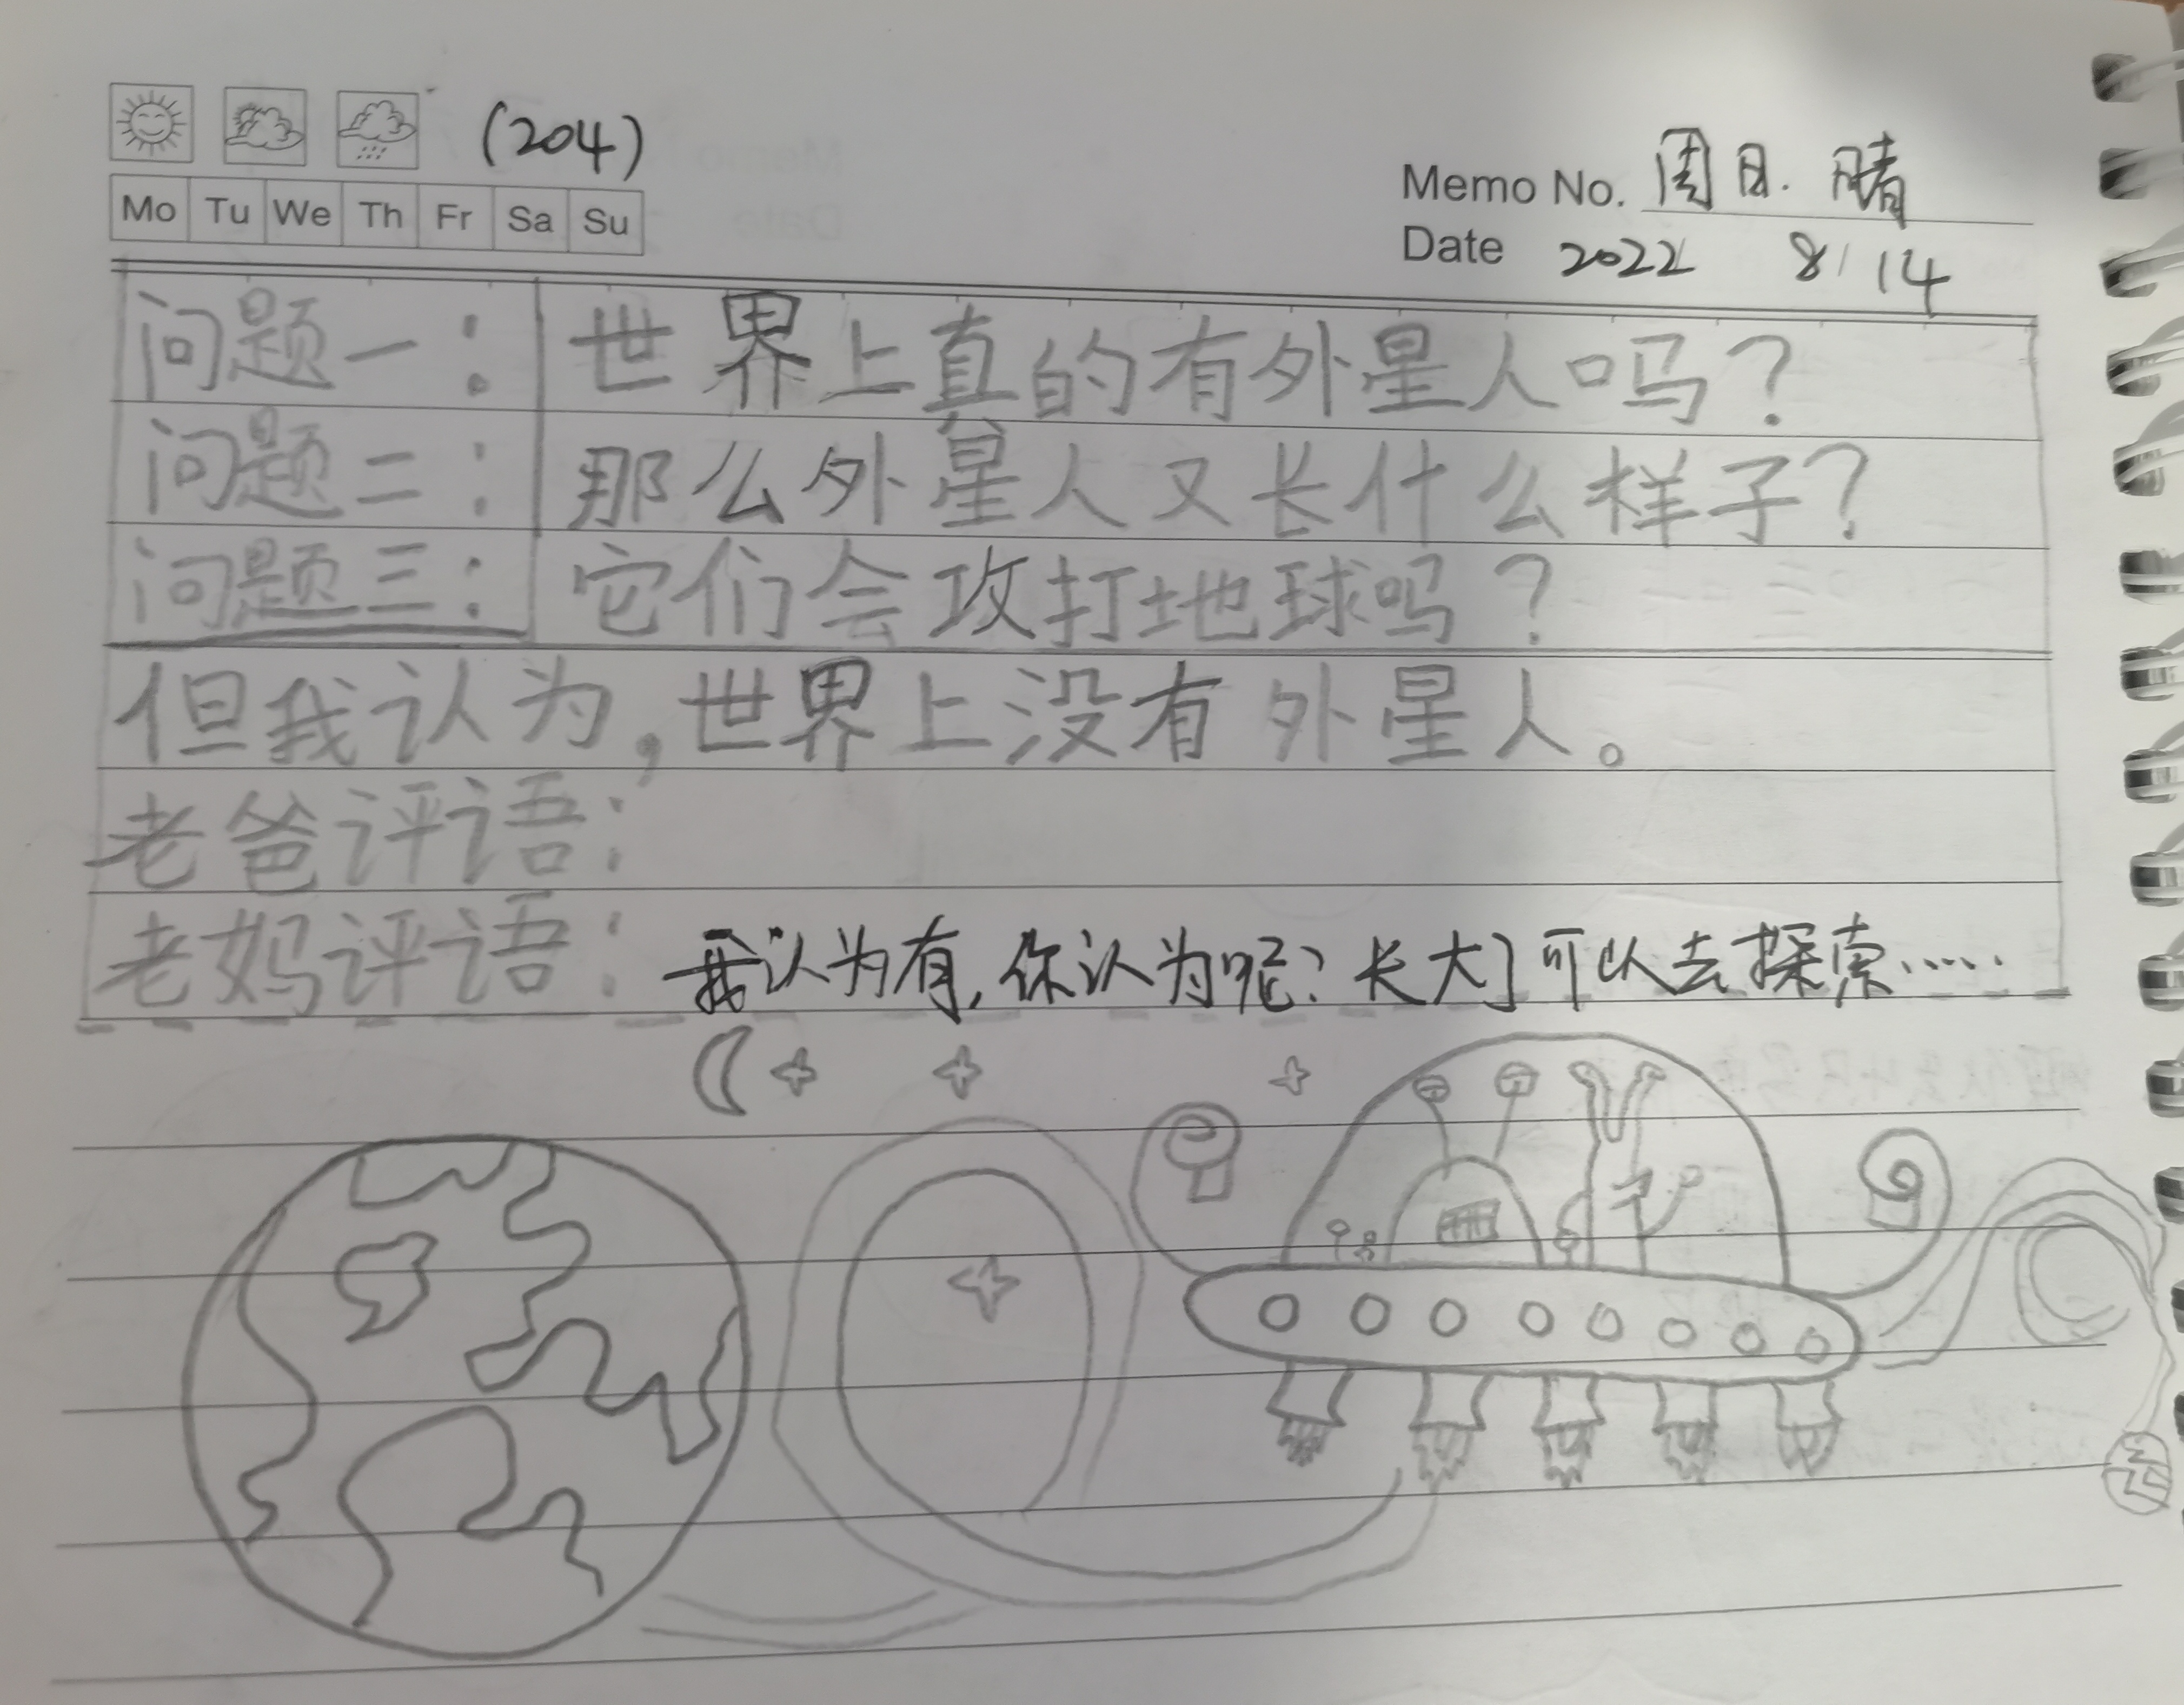 (204)
Memo No. 周日. 晴
Mo Tu We Th Fr Sa Su
Date 2022 8/14
问题一: 世界上真的有外星人吗?
问题二: 那么外星人又长什么样子?
问题三: 它们会攻打地球吗?
但我认为,世界上没有外星人。
老爸评语:
老妈评语: 我认为有,你认为呢?长大了可以去探索……